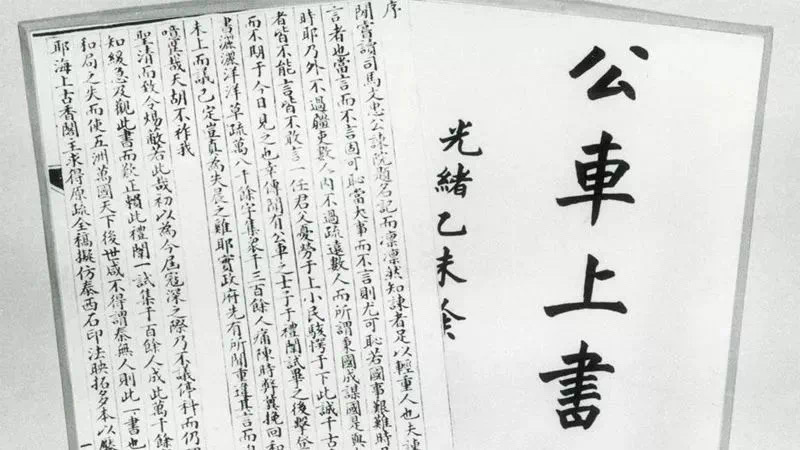 公車上書
光緒乙未
序
聞嘗讀司馬文忠公諫院題名記而凜凜然知諫者足以輕重人也夫諫
言者也當言而不言固可恥當大事而不言則尤可恥若國事艱難時
時耶乃外不過疆吏數人內不過疏遠數人而所謂秉國成謀國是與
者皆不能言皆不敢言一任君父憂勞于上小民駭愕于下此誠千古
而不期于今日見之也幸傳聞有公車之士子于禮闈試畢之後擊登
書灑灑洋洋草疏萬八千餘字集眾千三百餘人痛陳時弊冀挽回和
未上而議已定豈真為失晨之雞耶實政府先有所聞重違其言而
噫異哉天胡不祚我
聖清而致令煬蔽若此哉初以為今屆寇深之際乃不議停科而仍
知緩急及觀此書而歎正賴此禮闈一試集千百餘人成此萬千餘
和局之失而使五洲萬國天下後世咸不得謂秦無人則此一書也
耶海上古香閣主求得原疏全稿擬仿泰西石印法映拓多本以
一